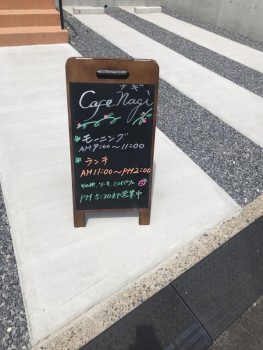 ナギ
Cafe Nagi
モーニング
AM9:00～11:00
ランチ
AM11:00～PM2:00
PM5:30まで営業中